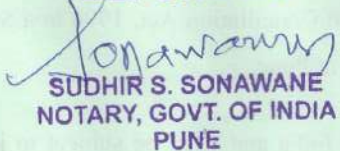 Sonawane
SUDHIR S. SONAWANE
NOTARY, GOVT. OF INDIA
PUNE